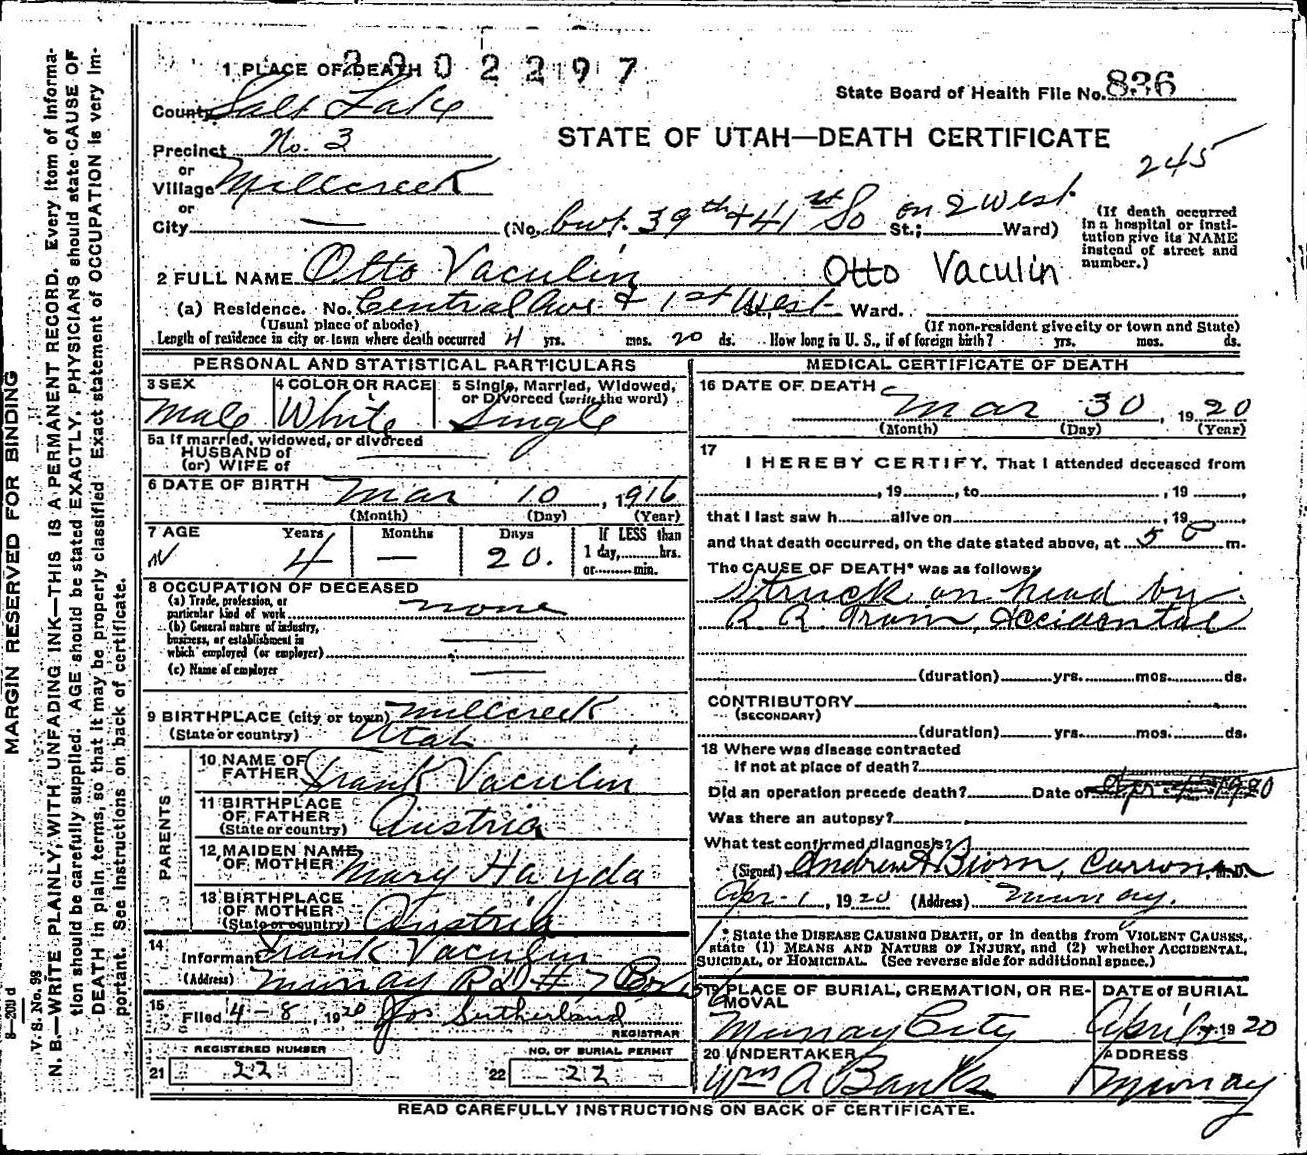 MARGIN RESERVED FOR BINDING
8—200 d
V. S. No. 98
N. B.—WRITE PLAINLY, WITH UNFADING INK—THIS IS A PERMANENT RECORD. Every item of informa-
tion should be carefully supplied. AGE should be stated EXACTLY. PHYSICIANS should state CAUSE OF
DEATH in plain terms, so that it may be properly classified. Exact statement of OCCUPATION is very im-
portant. See instructions on back of certificate.
2002297
1 PLACE OF DEATH
State Board of Health File No. 836
County Salt Lake
STATE OF UTAH—DEATH CERTIFICATE
245
Precinct No. 3
or
Village Millcreek
or
City — (No. bwt. 39th + 41st So on 2 West St.; Ward)
(If death occurred in a hospital or insti-
tution give its NAME instead of street and number.)
2 FULL NAME Otto Vaculin Otto Vaculin
(a) Residence. No. Central Ave & 1st West Ward.
(Usual place of abode) (If non-resident give city or town and State)
Length of residence in city or town where death occurred 4 yrs. mos. 20 ds. How long in U. S., if of foreign birth? yrs. mos. ds.
PERSONAL AND STATISTICAL PARTICULARS
3 SEX Male
4 COLOR OR RACE White
5 Single, Married, Widowed, or Divorced (write the word) Single
5a If married, widowed, or divorced
HUSBAND of
(or) WIFE of
6 DATE OF BIRTH Mar 10, 1916
(Month) (Day) (Year)
7 AGE Years 4 Months — Days 20. If LESS than 1 day, hrs. or min.
8 OCCUPATION OF DECEASED
(a) Trade, profession, or particular kind of work none
(b) General nature of industry, business, or establishment in which employed (or employer)
(c) Name of employer
9 BIRTHPLACE (city or town) Millcreek
(State or country) Utah
PARENTS
10 NAME OF FATHER Frank Vaculin
11 BIRTHPLACE OF FATHER (State or country) Austria
12 MAIDEN NAME OF MOTHER Mary Hayda
13 BIRTHPLACE OF MOTHER (State or country) Austria
14
Informant Frank Vaculin
(Address) Murray RD # 7 Box
15 Filed 4-8, 1920 Jos Sutherland
REGISTRAR
21 REGISTERED NUMBER 22
22 NO. OF BURIAL PERMIT 22
MEDICAL CERTIFICATE OF DEATH
16 DATE OF DEATH
Mar 30, 1920
(Month) (Day) (Year)
17
I HEREBY CERTIFY, That I attended deceased from
, 19 , to , 19 ,
that I last saw h alive on , 19
and that death occurred, on the date stated above, at 5 P m.
The CAUSE OF DEATH* was as follows:
Struck on head by
R. R. Train, Accidental
(duration) yrs. mos. ds.
CONTRIBUTORY
(SECONDARY)
(duration) yrs. mos. ds.
18 Where was disease contracted
if not at place of death?
Did an operation precede death? Date of
Was there an autopsy?
What test confirmed diagnosis?
(Signed) Andrew A Biorn, Corroner, M. D.
Apr-1, 1920 (Address) Murray.
* State the DISEASE CAUSING DEATH, or in deaths from VIOLENT CAUSES,
state (1) MEANS AND NATURE OF INJURY, and (2) whether ACCIDENTAL,
SUICIDAL, or HOMICIDAL. (See reverse side for additional space.)
19 PLACE OF BURIAL, CREMATION, OR RE-
MOVAL
Murray City
DATE OF BURIAL
April 1920
20 UNDERTAKER
Wm A Banks
ADDRESS
Murray
READ CAREFULLY INSTRUCTIONS ON BACK OF CERTIFICATE.